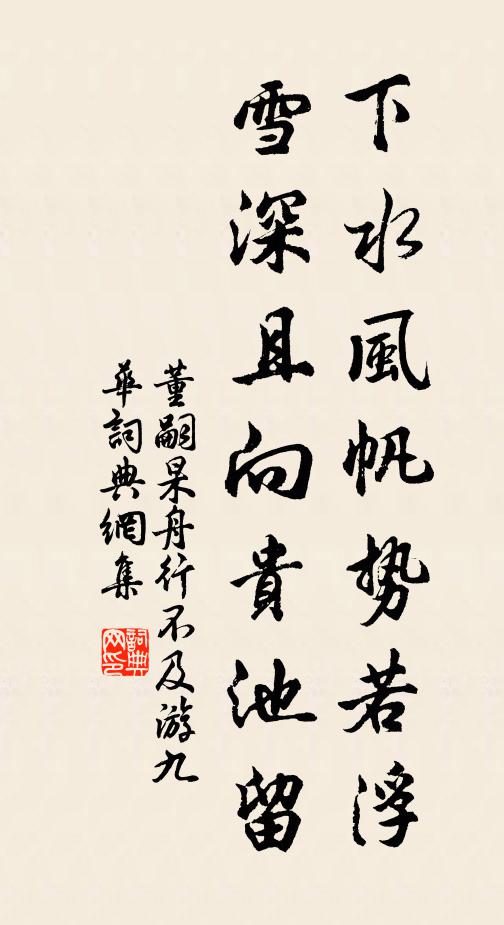 下水風帆势若浮
雪深且向貴池留
董嗣杲舟行不及游九
華詞典網集
詞典网印